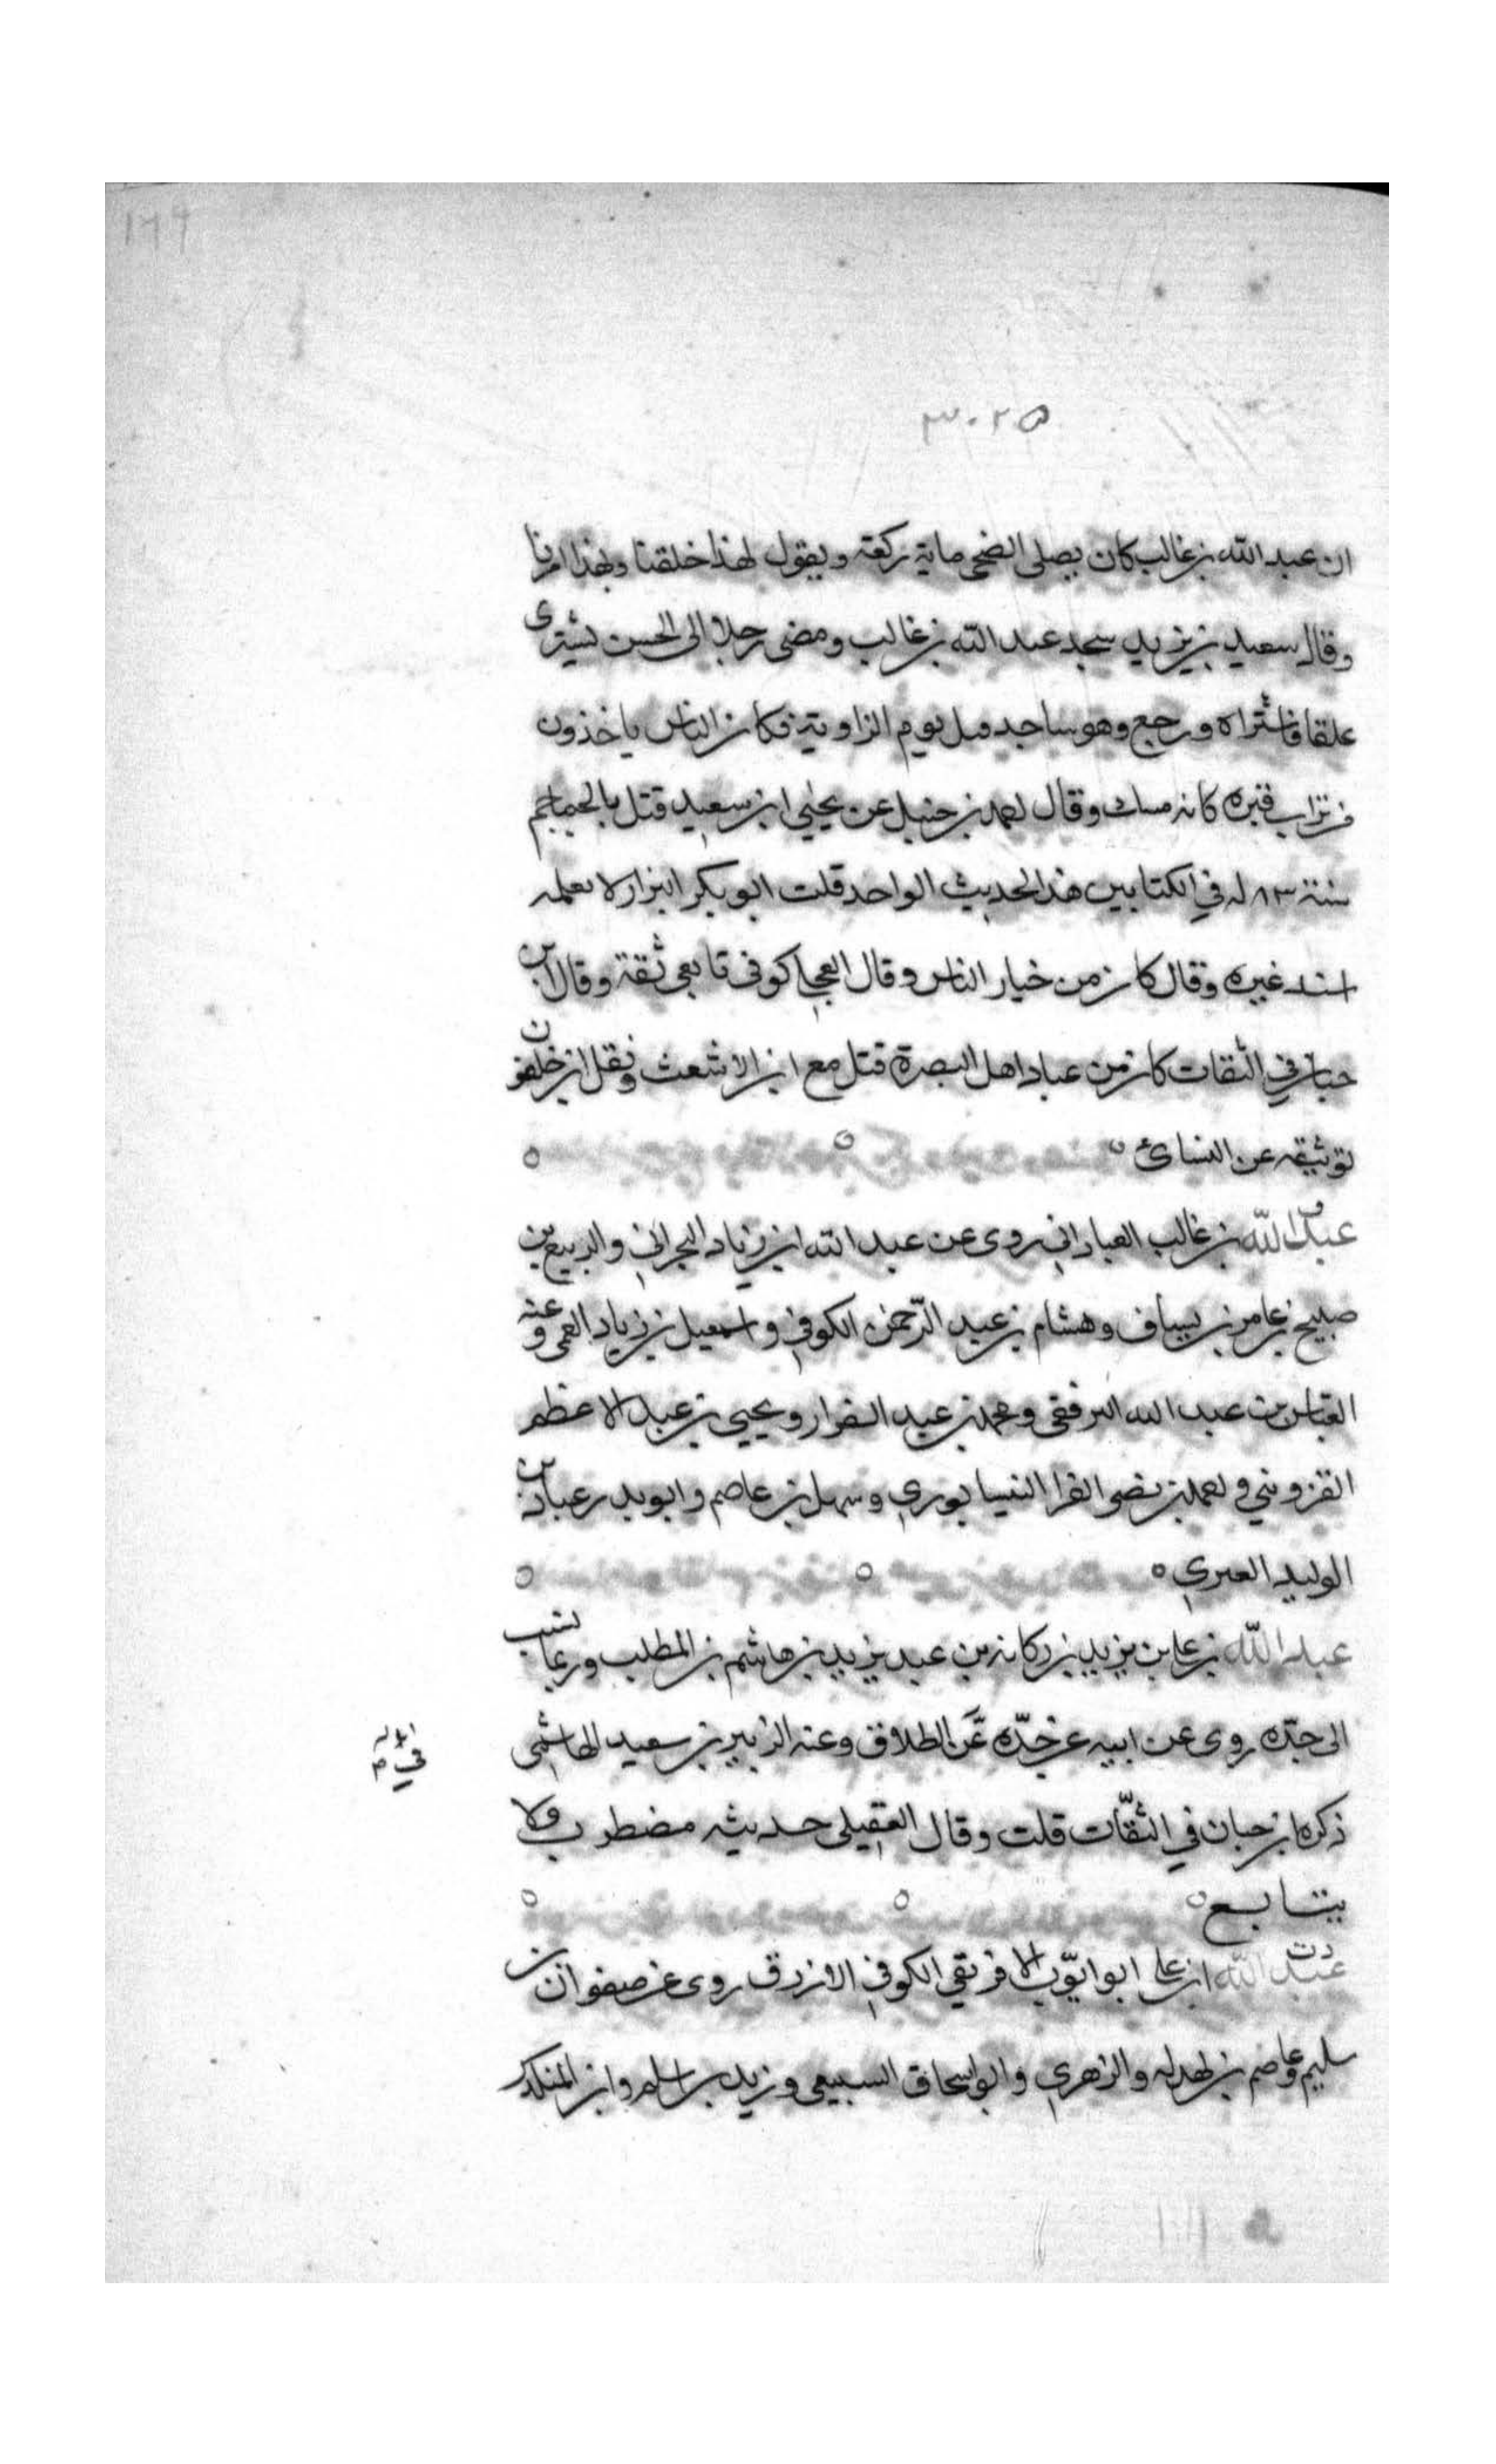 ١٦٩
٣٠٢٥
ان عبد الله بن غالب كان يصلي الضحى ماية ركعة ويقول لهذا خلقنا وبهذا امرنا
وقال سعيد بن يزيد سجد عبد الله بن غالب ومضى رجل الى الجسر يشترى
علقا فاشتراه ورجع وهو ساجد قتل يوم الزاوية فكان الناس ياخذون
من تراب قبره كانه مسك وقال احمد بن حنبل عن يحيى ابن سعيد قتل بالجماجم
سنة ٨٣ له في الكتابين هذا الحديث الواحد قلت ابو بكر البزار لا نعلمه
اسند غيره وقال كان من خيار الناس وقال العجلي كوفى تابعي ثقة وقال ابن
حبان في الثقات كان من عباد اهل البصرة قتل مع ابن الاشعث ونقل ابن خلفون
توثيقه عن النسائ
عبد الله بن غالب العباداني روى عن عبد الله ابن زياد البحراني والربيع بن
صبيح بن عامر بن يساف وهشام بن عبد الرحمن الكوفي واسمعيل بن زياد العمى وعنه
العباس بن عبد الله الترفقى ومحمد بن عبد ويحيى بن عبد الاعظم
القزوينى واحمد بن نصر الفرا النيسابوري وسهل بن عاصم وابو بدر عباد بن
الوليد الغبري
عبد الله بن علي بن يزيد بن ركانه بن عبد يزيد بن هاشم بن المطلب وربما نسب
الى جده روى عن ابيه عن جده في الطلاق وعنه الزبير بن سعيد الهاشمى
ذكره ابن حبان في الثقات قلت وقال العقيلى حديثه مضطرب ولا
يتابع
د ت
عبد الله ابن علي ابو ايوب الافريقي الكوفي الازرق روى عن صفوان بن
سليم وعاصم بن بهدله والزهري وابو اسحاق السبيعى وزيد بن اسلم وابن المنكدر